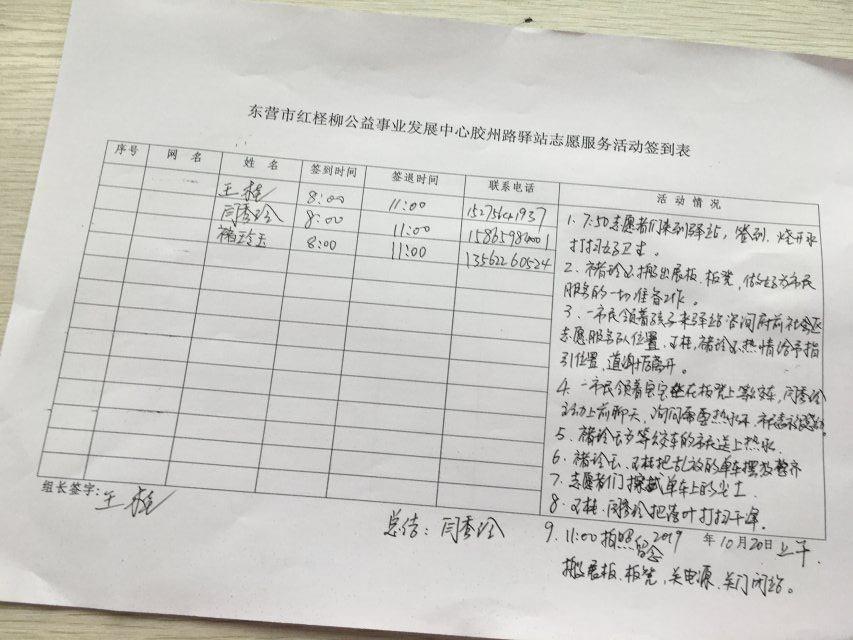 东营市红柽柳公益事业发展中心胶州路驿站志愿服务活动签到表
序号 网 名 姓 名 签到时间 签退时间 联系电话 活 动 情 况
王桂 8:00 11:00 15275641937
闫秀玲 8:00 11:00
褚玲玉 8:00 11:00 13562260524
1. 7:50志愿者们来到驿站，签到、烧开水
打扫好卫生。
2、褚玲玉搬出展板、板凳，做好为市民
服务的一切准备工作。
3、一市民领着孩子来驿站咨询府前社会区
志愿服务队位置，王桂，褚玲玉热情给予指
引位置，道谢后离开。
4、一市民领着宝宝坐在板凳上等公交车，闫秀玲
主动上前聊天，询问需要热水不，市民表示
5、褚玲玉为等公交车的市民送上热水
6、褚玲玉、王桂把乱放的单车摆放整齐
7、志愿者们擦拭单车上的尘土
8、王桂、闫秀玲把落叶打扫干净。
组长签字：王桂
总结：闫秀玲
9、11:00拍照留念 2019 年10月20日上午.
搬展板、板凳，关电源、关门闭站。